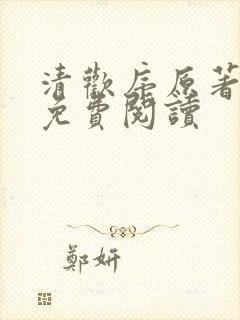 清歡序原著
免費閱讀
鄭妍